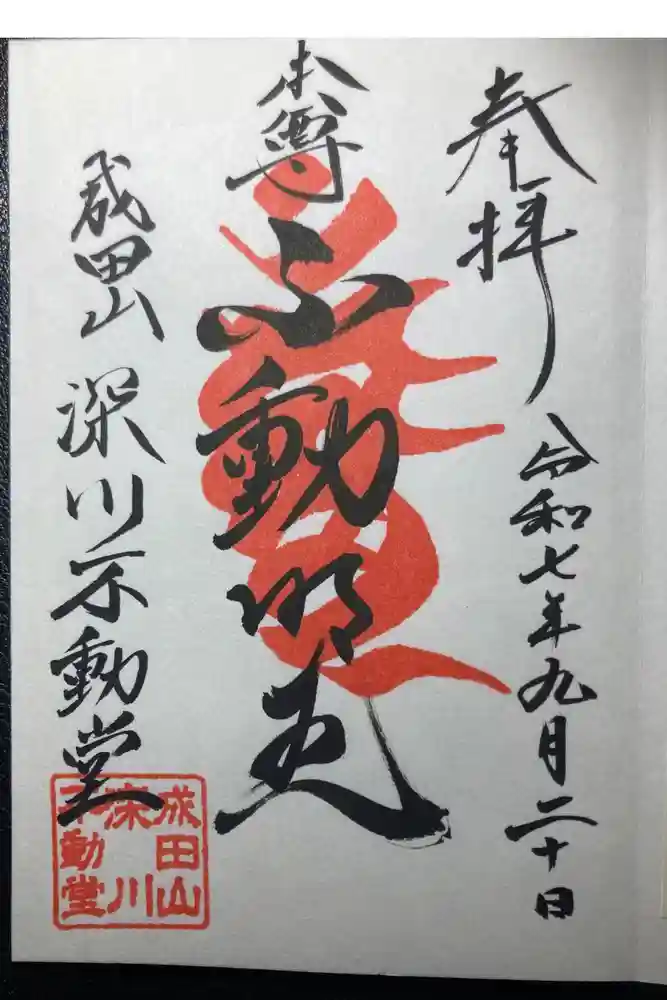 奉拝
令和七年九月二十日
本尊
不動明王
成田山 深川不動堂
成田山
深川
不動堂